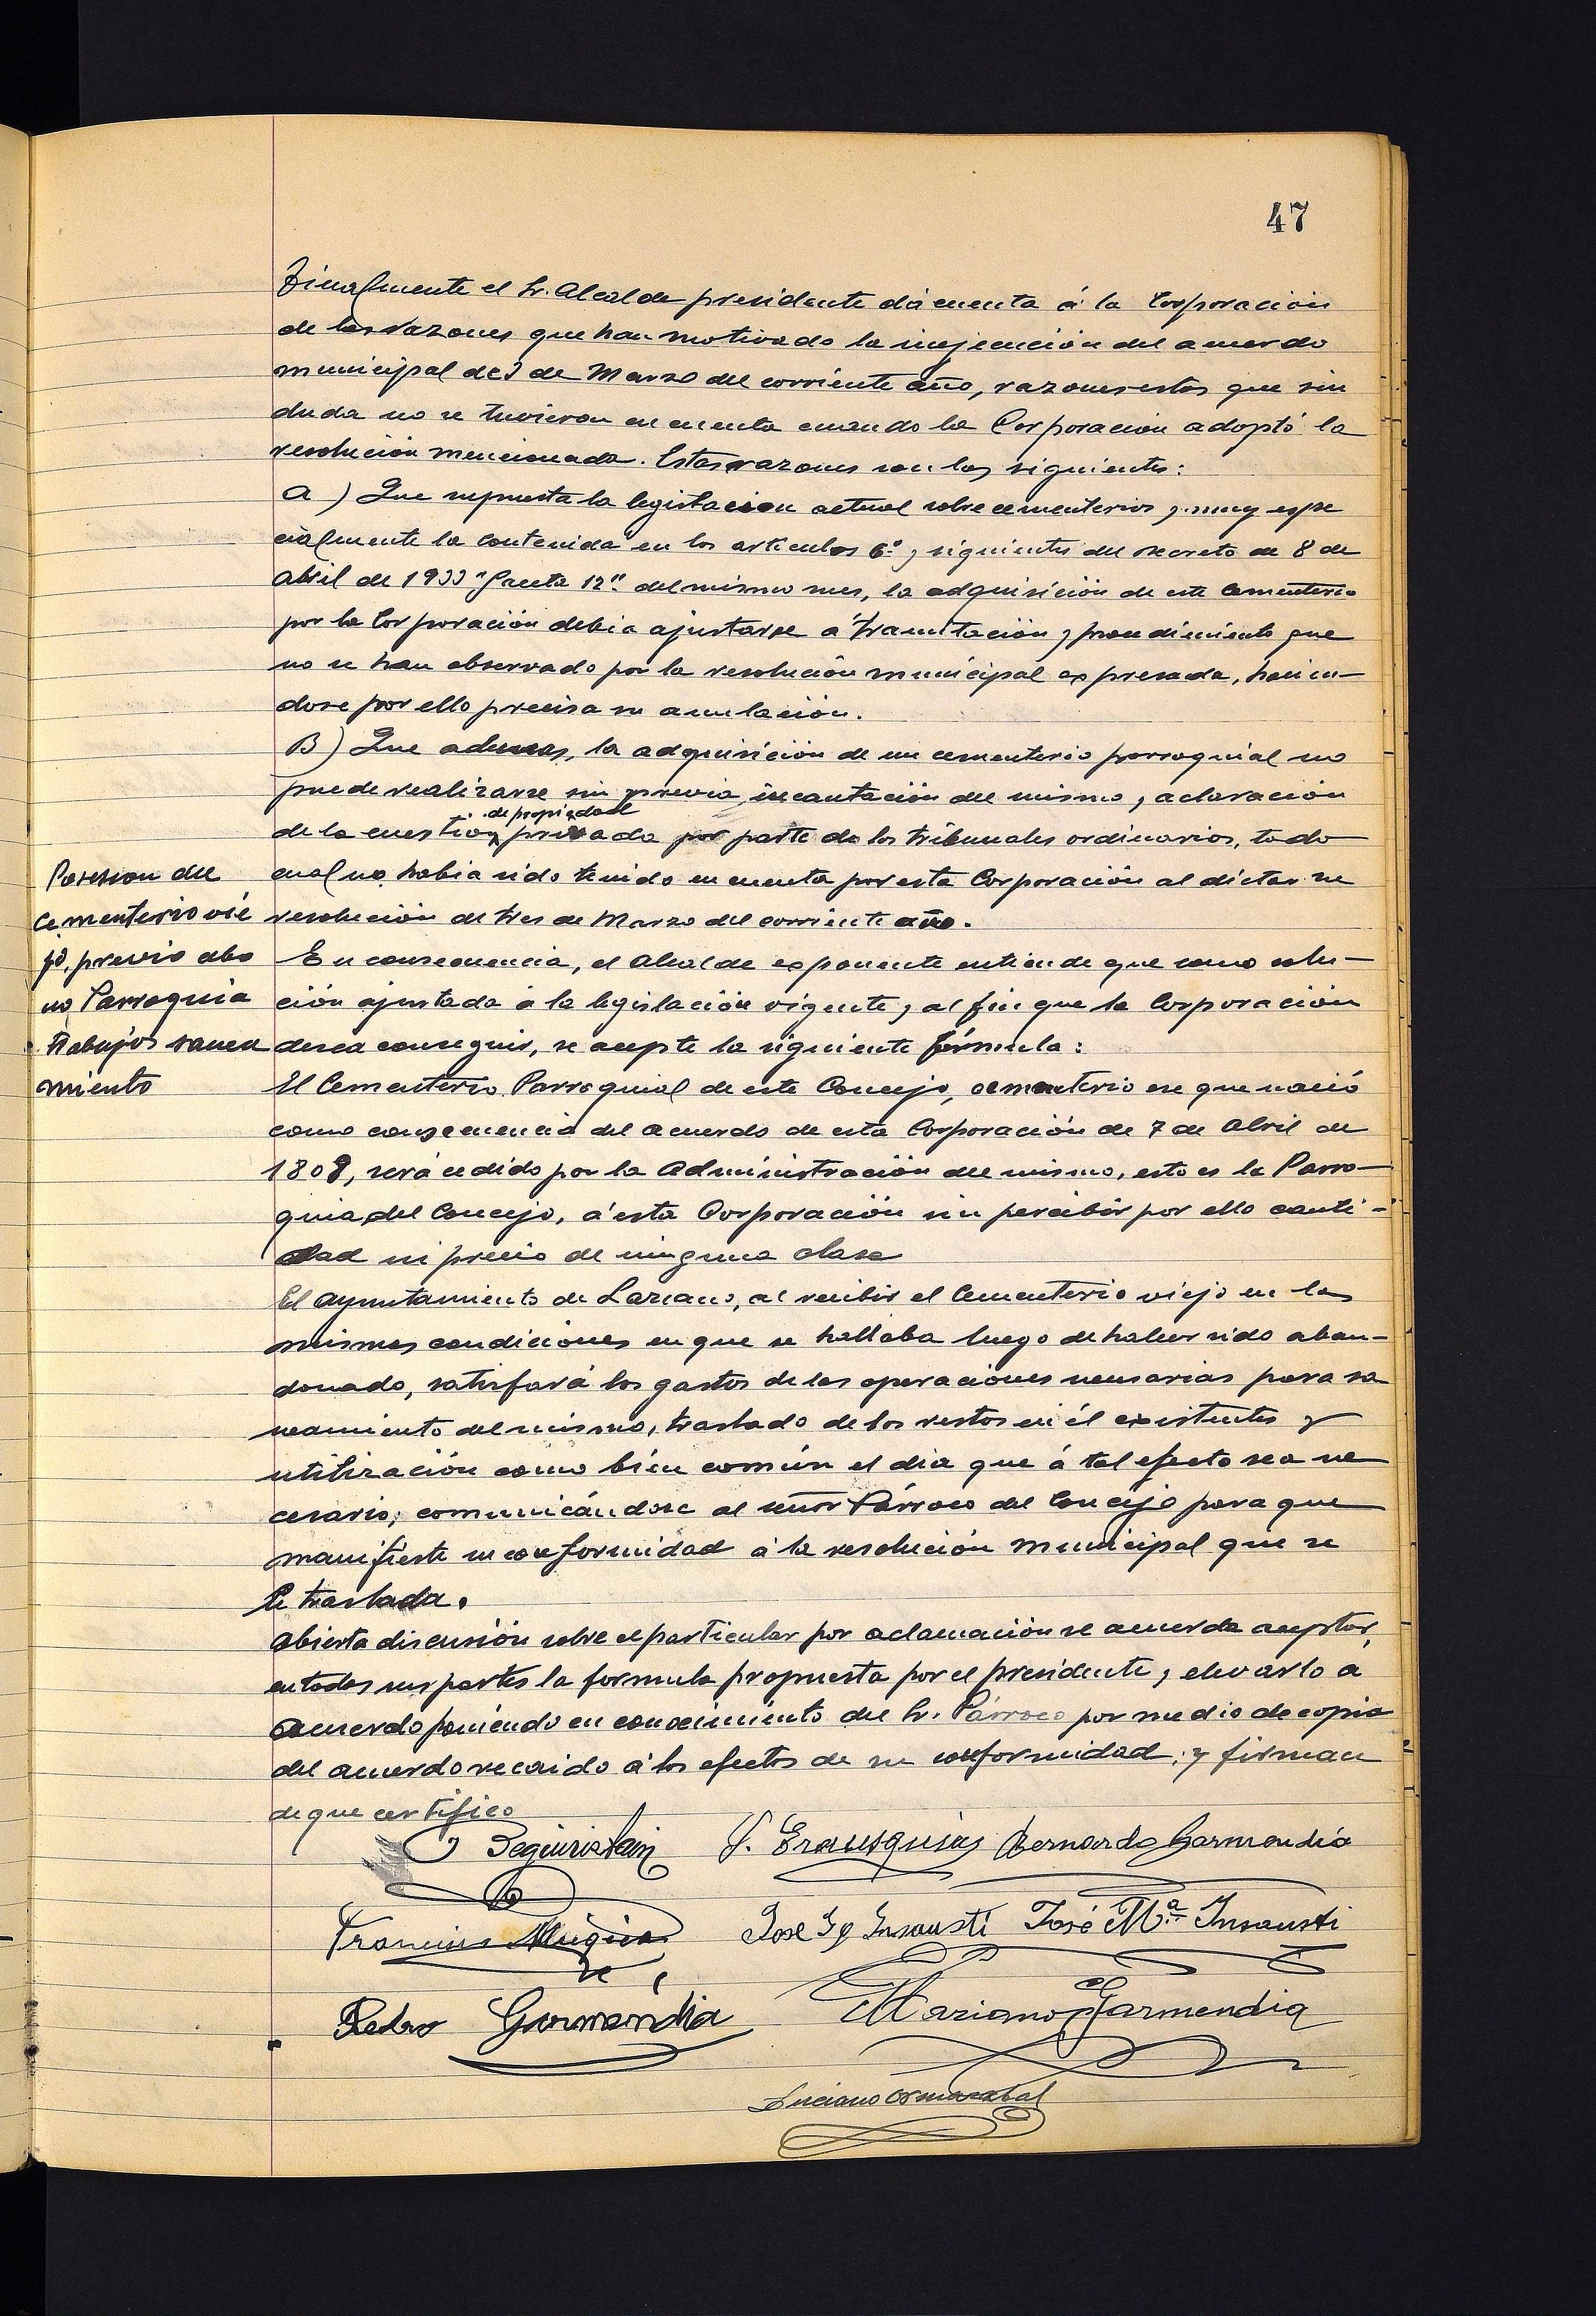 47
Finalmente el Sr. Alcalde presidente dá cuenta á la Corporación
de las razones que han motivado la inejecución del acuerdo
municipal de 3 de Marzo del corriente año, razones estas que sin
duda no se tuvieron en cuenta cuando la Corporación adoptó la
resolución mencionada. Estas razones son las siguientes:
A) Que supuesta la legislacion actual sobre cementerios y muy espe
cialmente la contenida en los articulos 6º y siguientes del decreto de 8 de
Abril de 1933 "Gaceta 12" del mismo mes, la adquisición de este Cementerio
por la Corporación debia ajustarse a tramitación y procedimiento que
no se han observado por la resolución municipal expresada, hacien-
dose por ello precisa su anulación.
B) Que ademas, la adquisición de un cementerio parroquial no
puede realizarse sin previa incautación del mismo y aclaración
de propiedad
de la cuestion privada por parte de los tribunales ordinarios, todo
cual no habia sido tenido en cuenta por esta Corporación al dictar su
resolución de tres de Marzo del corriente año.
Posesion del
Cementerio vie
jo, previo abo
no Parroquia
trabajos sanea
miento
En consecuencia, el Alcalde exponente entiende que como solu-
ción ajustada á la legislación vigente y al fin que la Corporación
desea conseguir, se acepte la siguiente fórmula:
El Cementerio Parroquial de este Concejo, cementerio ese que nació
como consecuencia del acuerdo de esta Corporación de 7 de Abril de
1808, será cedido por la Administración del mismo, esto es la Parro-
quia del Concejo, á esta Corporación sin percibir por ello canti-
dad ni precio de ninguna clase
El Ayuntamiento de Lazcano, al recibir el Cementerio viejo en las
mismas condiciones en que se hallaba luego de haber sido aban-
donado, satisfará los gastos de las operaciones necesarias para sa
neamiento del mismo, traslado de los restos en él existentes y
utilización como bien común el dia que á tal efecto sea ne
cesario; comunicándose al señor Párroco del Concejo para que
manifieste su conformidad á la resolución municipal que se
le traslada.
Abierta discusión sobre el particular por aclamación se acuerda aceptar,
en todas sus partes la formula propuesta por el presidente y elevarlo a
acuerdo poniendo en conocimiento del Sr. Párroco por medio de copia
del acuerdo recaido á los efectos de su conformidad; y firman
de que certifico
Bernardo Garmendia
Francisco Múgica José Ig Insausti José Mª Insausti
Pedro Garmendia Mariano Garmendia
Luciano Ormazabal